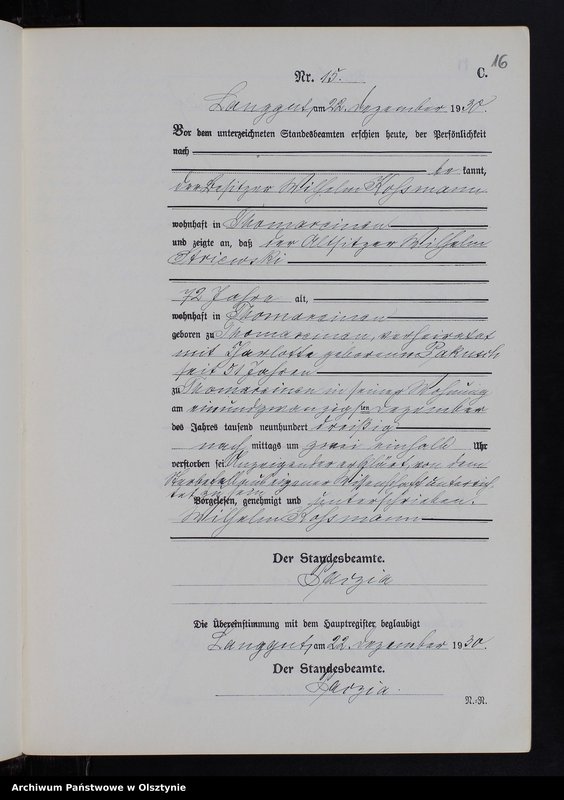 16
Nr. 15. C.
Langgut, am 22. Dezember 1930.
Vor dem unterzeichneten Standesbeamten erschien heute, der Persönlichkeit
nach
be kannt,
der Besitzer Wilhelm Koßmann
wohnhaft in Thomareinen
und zeigte an, daß der Altsitzer Wilhelm
Striewski
72 Jahre alt,
wohnhaft in Thomareinen
geboren zu Thomareinen, verheiratet
mit Charlotte geborenen
seit 51 Jahren
zu Thomareinen in seiner Wohnung
am einundzwanzigsten Dezember
des Jahres tausend neunhundert dreißig
nach mittags um zwei einhalb Uhr
verstorben sei. Anzeigender erklärt, von dem
Sterbefall aus eigener Wissenschaft unterrich
tet zu sein
Vorgelesen, genehmigt und unterschrieben.
Wilhelm Koßmann
Der Standesbeamte.
Die Übereinstimmung mit dem Hauptregister beglaubigt
Langgut, am 22. Dezember 1930.
Der Standesbeamte.
N.-R.
Archiwum Państwowe w Olsztynie